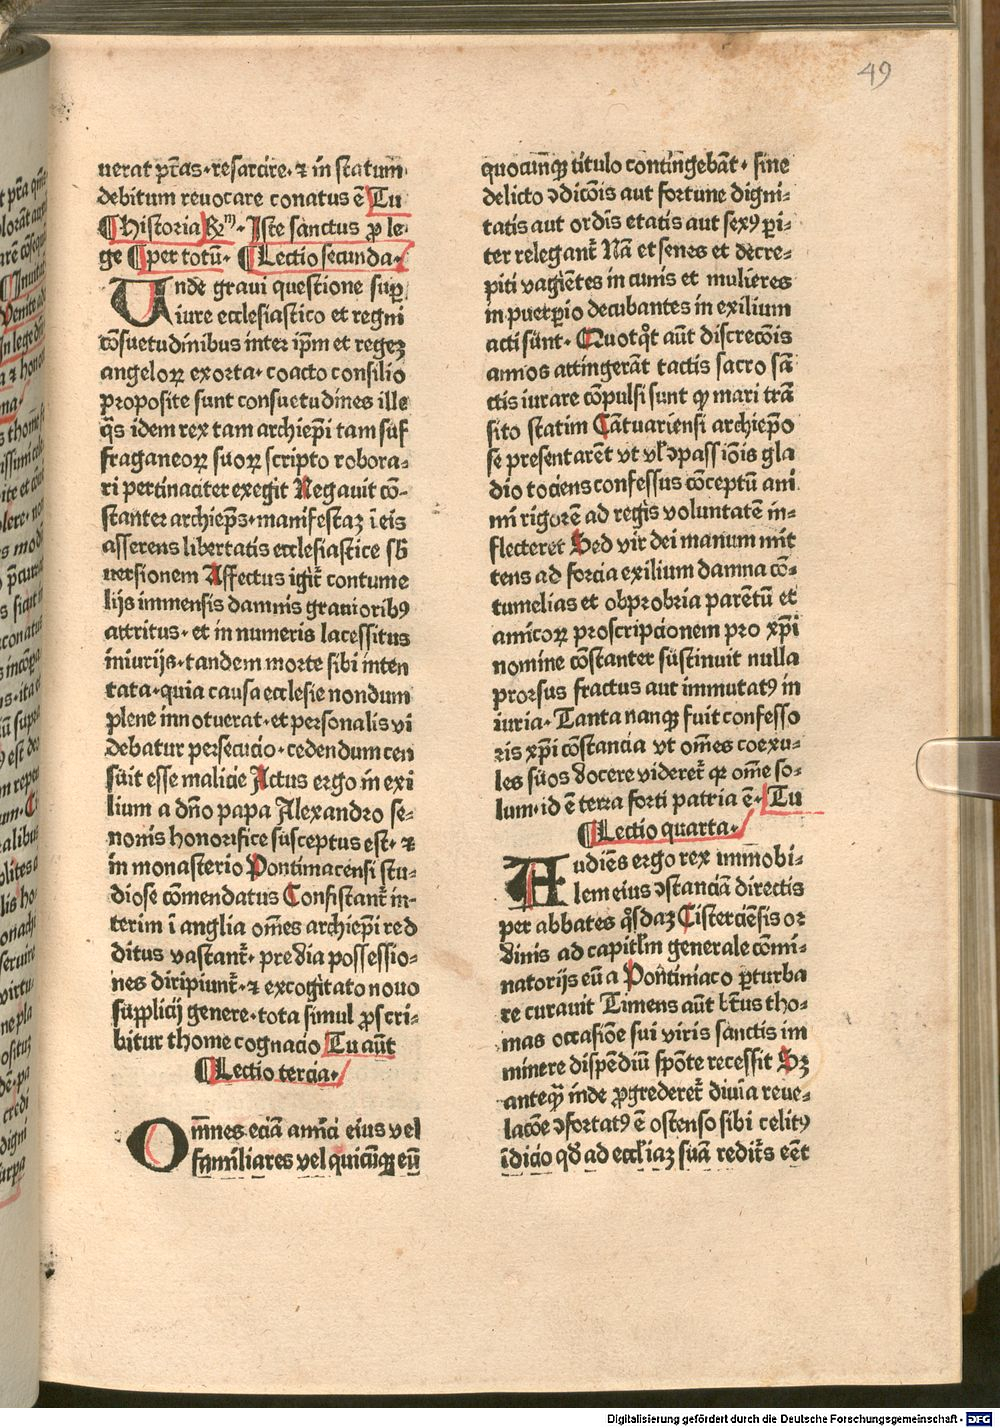 49
uerat pr̄tas · resarcire · ⁊ in statum
debitum reuocare conatus ē Tu
¶Historia R̷m · Iste sanctus ꝓ le
ge ¶per totū · ¶Lectio secunda ·
Unde graui questione suꝑ
iure ecclesiastico et regni
cōsuetudinibus inter ip̄m et regeꝫ
angeloꝝ exorta · coacto consilio
proposite sunt consuetudines ille
qͦs idem rex tam archiep̄i tam suf
fraganeoꝝ suoꝝ scripto robora⸗
ri pertinaciter exegit Negauit cō⸗
stanter archiep̄s · manifestaꝫ ī eis
asserens libertatis ecclesiastice sb̄
uersionem Affectus igit̄ contume
lijs immensis damnis grauioribꝰ
attritus · et in numeris lacessitus
iniurijs · tandem morte sibi inten
tata · quia causa ecclesie nondum
plene innotuerat · et personalis vi
debatur persecucio · cedendum cen
suit esse malicie Actus ergo in exi
lium a dn̄o papa Alexandro se⸗
nonis honorifice susceptus est · ⁊
in monasterio Pontiniacensi stu⸗
diose cōmendatus Confistant̄ in⸗
terim ī anglia om̄es archiep̄i red
ditus vastant̄ · predia possessio⸗
nes diripiunt̄ · ⁊ excogitato nouo
supplicij genere · tota simul ꝓscri⸗
bitur thome cognacio Tu aūt
¶Lectio tercia ·
Om̄nes eciā amici eius vel
familiares vel quicūqꝫ eū
quocūnqꝫ titulo contingebāt · sine
delicto ↄdicōis aut fortune digni⸗
tatis aut ordīs etatis aut sexꝰ pi⸗
ter relegant̄ Nā et senes et decre⸗
piti vagiētes in cunis et mulieres
in puerꝑio decubantes in exilium
acti sunt · Quotqͦt aūt discrecōis
annos attingerāt tactis sacro sā
ctis iurare cōpulsi sunt ꝙ mari trā
sito statim Cātuariensi archiep̄o
se presentarēt vt vl̄ ↄpassiōis gla
dio tociens confessus cōceptū ani
mi rigorē ad regis voluntatē in⸗
flecteret Sed vir dei manum mit
tens ad forcia exilium damna cō⸗
tumelias et obprobria parētū et
amicoꝝ proscripcionem pro xp̄i
nomine cōstanter sustinuit nulla
prorsus fractus aut immutatꝰ in
iuria · Tanta nanqꝫ fuit confesso
ris xp̄i cōstancia vt om̄es coexu⸗
les suos docere videret̄ ꝙ om̄e so⸗
lum · id ē terra forti patria ē · Tu
¶Lectio quarta ·
Audiēs ergo rex immobi⸗
lem eius ↄstanciā directis
per abbates qͦsdaꝫ Cisterciēsis or
dinis ad capitl̄m generale cōmi⸗
natorijs eū a Pontiniaco ꝑturba
re curauit Timens aūt bt̄us tho⸗
mas occasiōe sui viris sanctis im
minere dispēdiū spōte recessit Sꝫ
anteqͣꝫ inde ꝓgrederet̄ diuīa reue⸗
lacōe ↄfortatꝰ ē ostenso sibi celitꝰ
īdicio qd̄ ad eccl̄iaꝫ suā redit̄s eēt
Digitalisierung gefördert durch die Deutsche Forschungsgemeinschaft - DFG